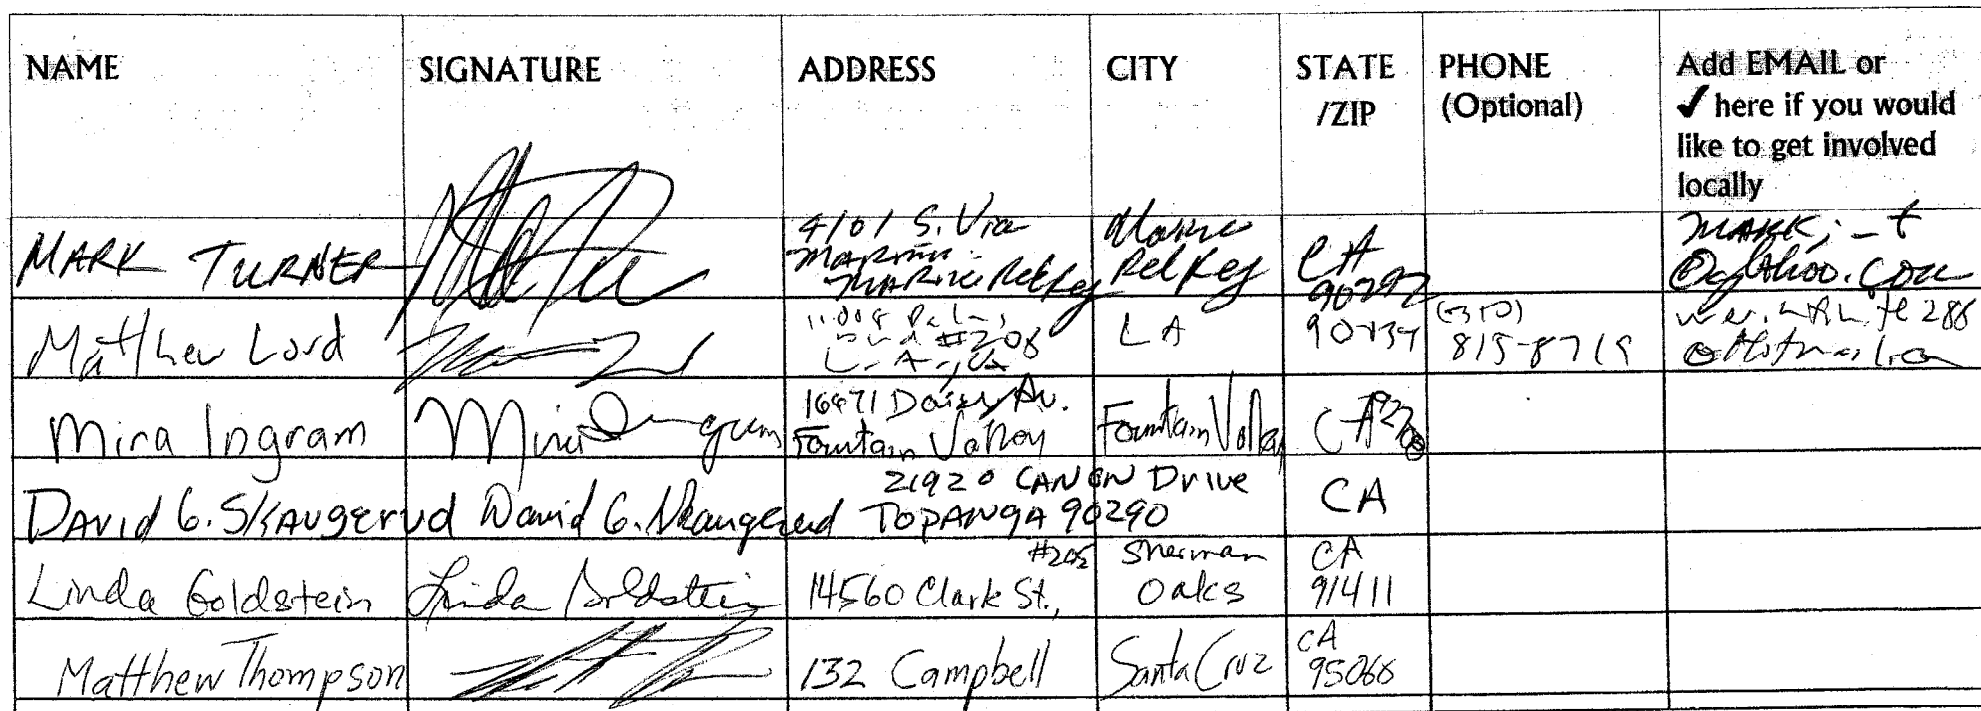 NAME SIGNATURE ADDRESS CITY STATE /ZIP PHONE (Optional) Add EMAIL or ✓ here if you would like to get involved locally
MARK TURNER 4101 S. Via Marina Marina Del Rey CA 90292 @yahoo.com
Matthew Lord #208 L.A., Ca LA (310) 815-8719
Mira Ingram Mira Ingram 16471 Daisy Av. Fountain Valley Fountain Valley CA
David G. Skaugerud David G. Skaugerud 21920 CANON Drive TOPANGA 90290 CA
Linda Goldstein Linda Goldstein 14560 Clark St., #205 Sherman Oaks CA 91411
Matthew Thompson 132 Campbell Santa Cruz CA 95066